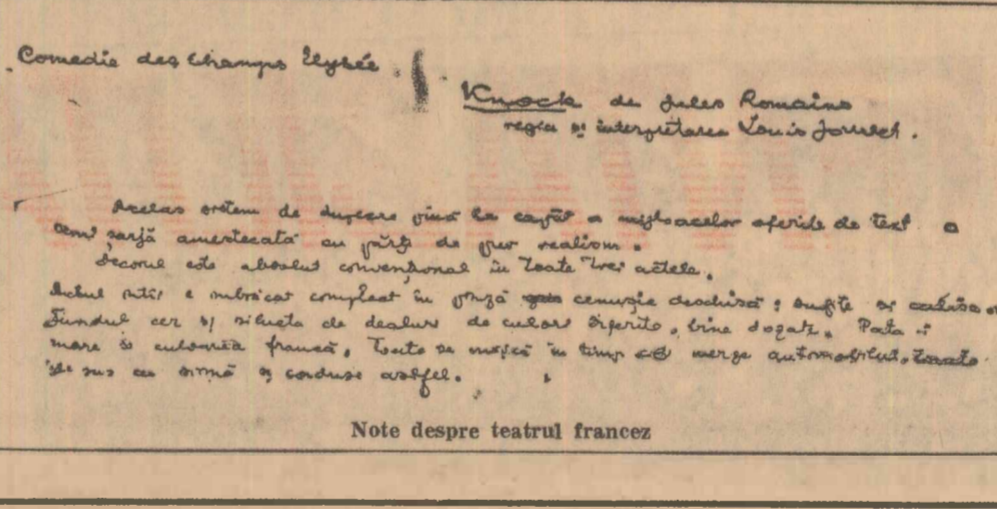 Comedie des Champs Elysée.
Knock de Jules Romains
regia și interpretarea Louis Jouvet.
Acelas sistem de ducere până la capăt a mijloacelor oferite de text o
șarjă amestecată cu părți de pur realism.
Decorul este absolut convențional în toate trei actele.
Actul e imbrăcat complect în pânză cenușie deschisă; sufite și
Fundul cer și silueta de dealuri de culori diferite, bine dozate. Pata
mare în culoarea franca. Toate se mișcă în timp ce merge automobilul,
de sus cu sârmă și conduse astfel.
Note despre teatrul francez